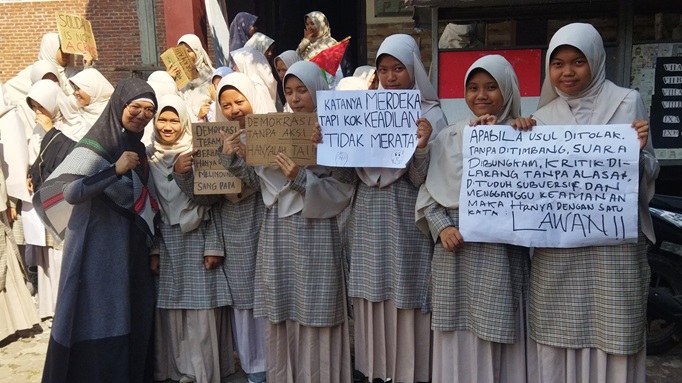 SOLID
DEMOKRASI
TERAM
BERHA
HANYA
MELINDUNG
SANG PAPA
DEMOKRASI
TANPA AKSI
HANYALAH TAI
KATANYA MERDEKA
TAPI KOK KEADILAN
TIDAK MERATA
APABILA USUL DITOLAK
TANPA DITIMBANG, SUARA
DIBUNGKAM, KRITIK DI-
LARANG TANPA ALASAN,
DITUDUH SUBVERSIF DAN
MENGGANGGU KEAMANAN
MAKA HANYA DENGAN SATU
KATA LAWAN !!